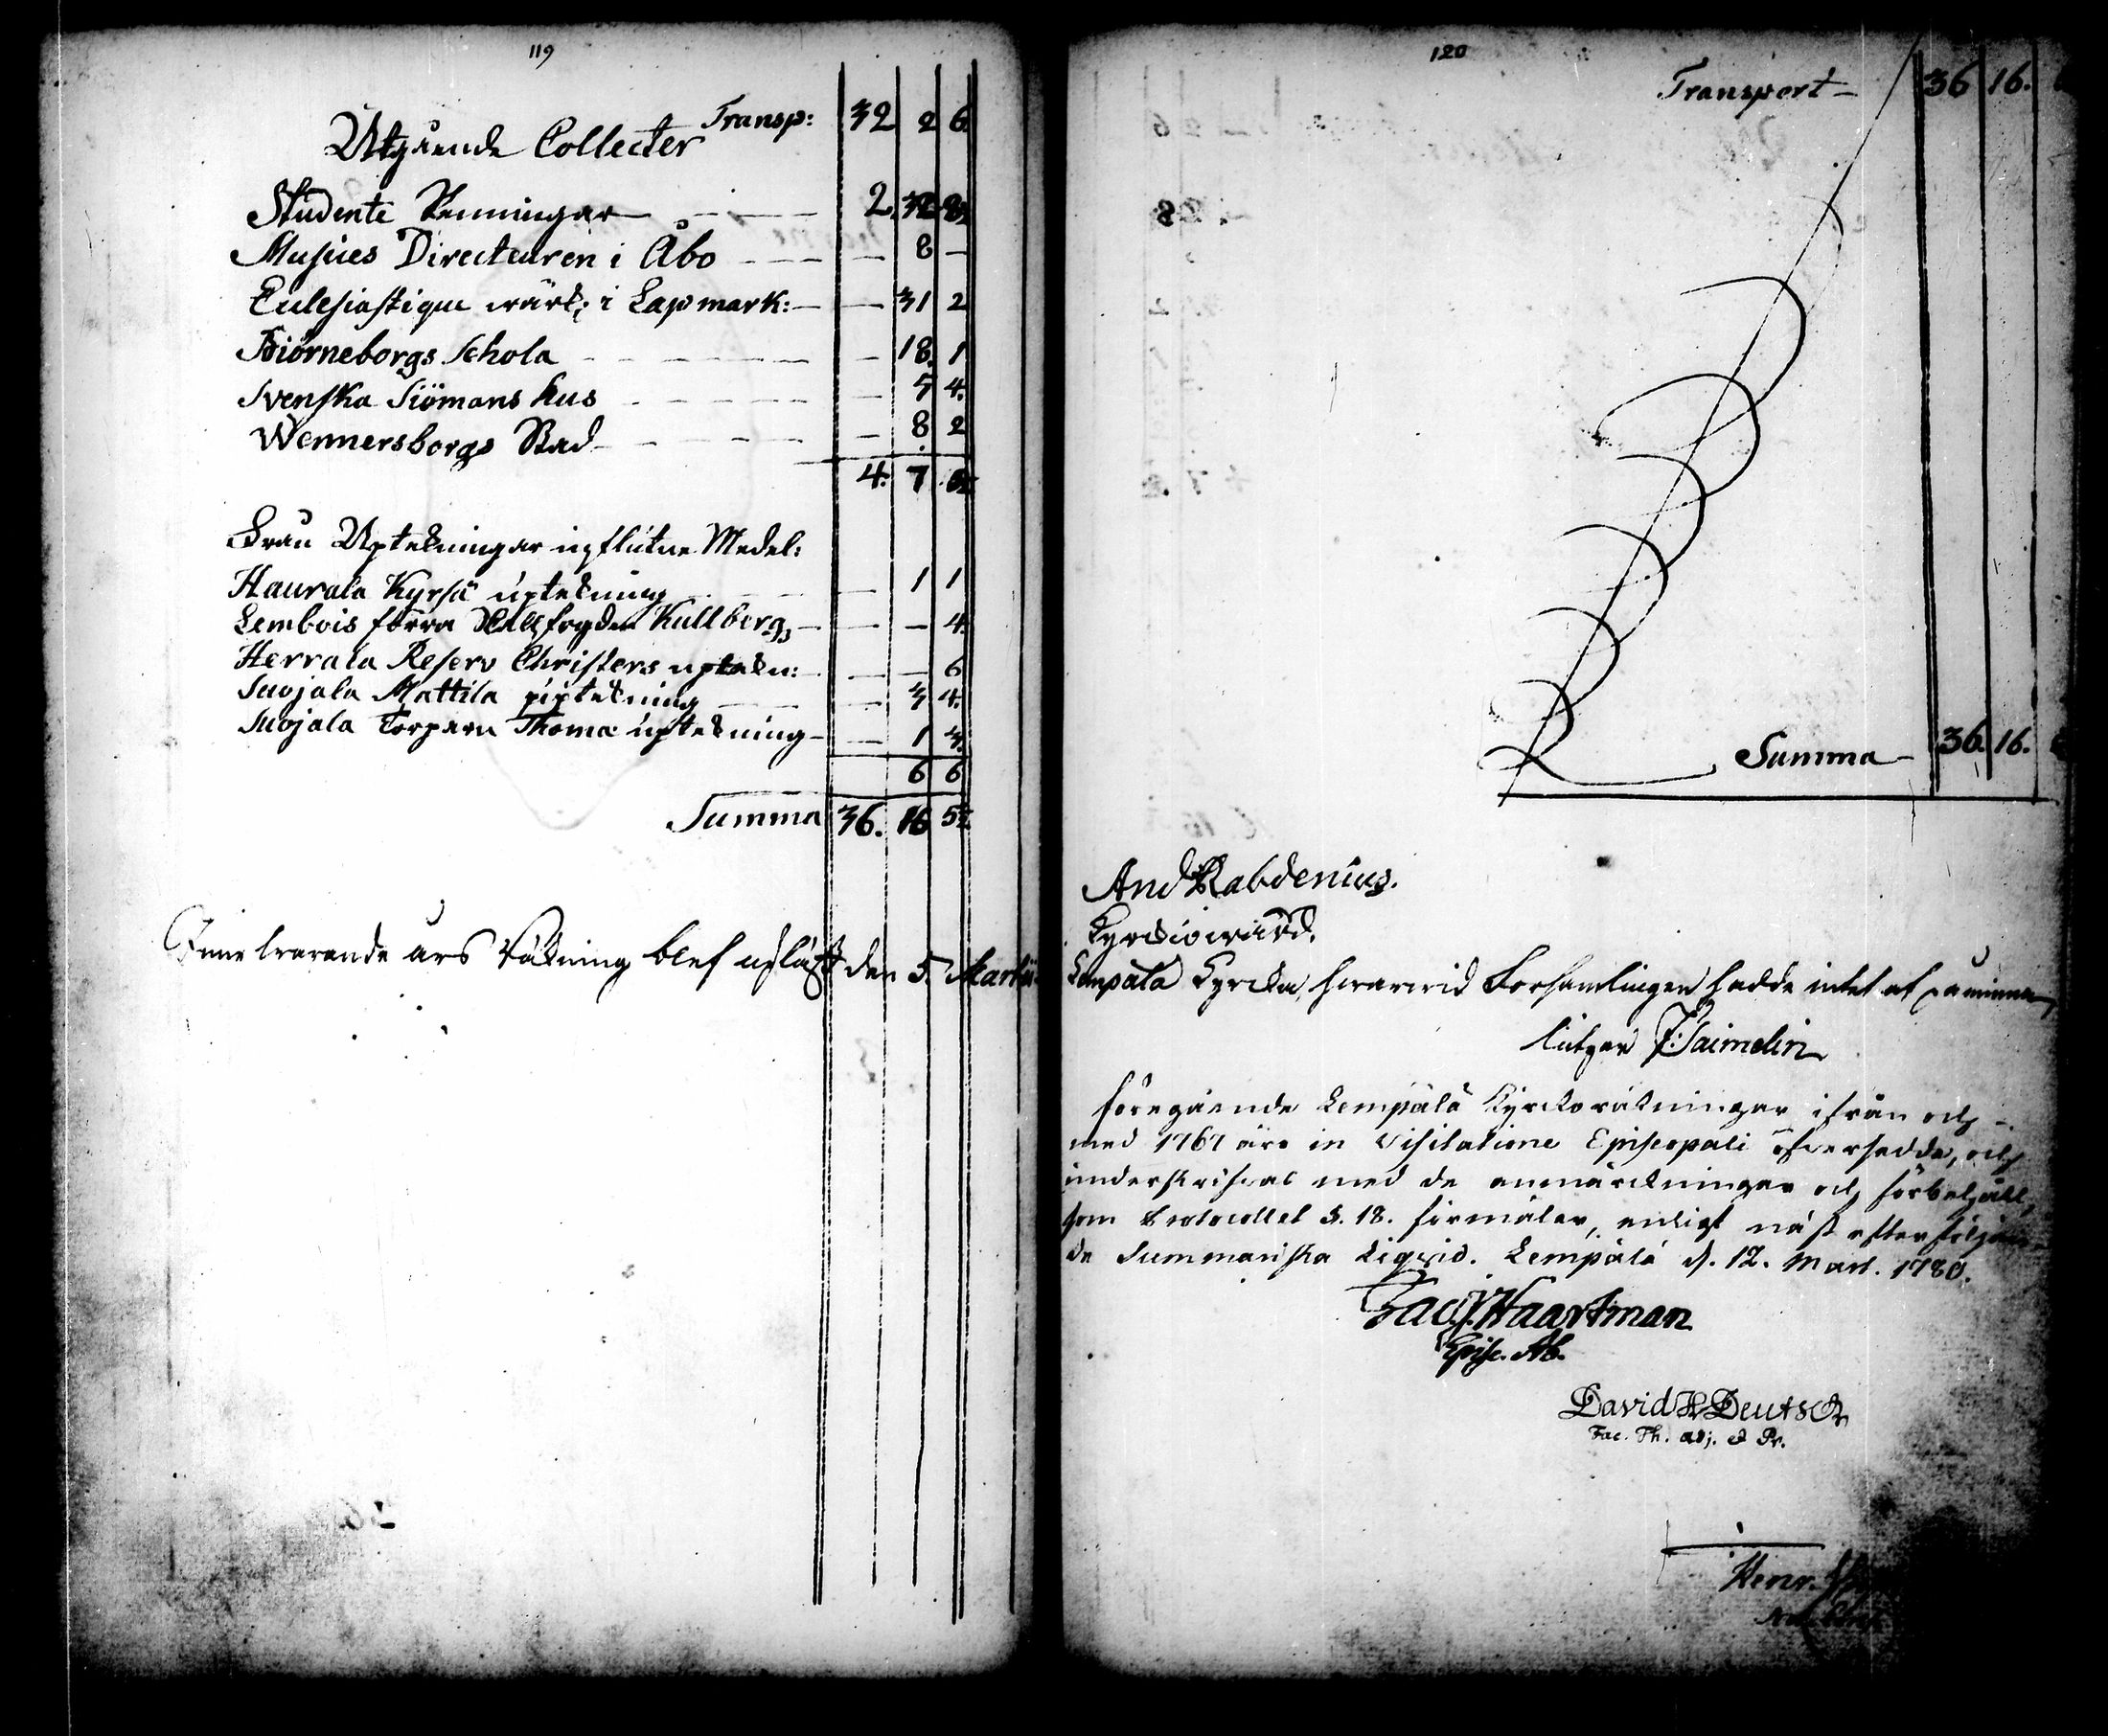 119
Transp: 32 2 6.
Utgående Collecter
Studente Penningar 2. 32 8½
Musices Directeuren i Åbo — 8 —
Ecclesiastique värk: i Lapmark: — 31 2
Biörneborgs Schola — 18. 1
Svenska Siömans hus — 5 4.
Wennersborgs Stad — 8 2
4. 7
Ifrån Uptekningar upflutne Medel:
Haurala Kyrsä uptekning — 1 1
Lembois förra Kullberg — — 4.
Herrala Reserv Christers uptekn: — — 6
Suojala Mattila uptekning — 3 4.
Suojala Torparen Thomæ uptekning — 1 3.
6 6
Summa 36. 16 5½
års Räkning blef upläst den 5. Martii
120
Transport — 36 16.
Summa — 36. 16.
And Rabdenius.
Kyrckiowärd.
Lempälä Kyrcka, hwarwid Församlingen hadde intet at påminna,
intygar Z: Saimelin
föregående Lempälä Kyrcko räkningar ifrån och
med 1767 äro in Visitatione Episcopali öfversedde, och
underskrifvas med de anmärckningar och förbehåll,
som Protocollet §. 18. förmäler, enligt näst efterfölján-
de Summariska Liqvid. Lempälä d. 12. Mart. 1780.
Jac. Haartman
Episc. Ab.
David H Deutsch
Fac. Th. adj. & Pr.
Henr.